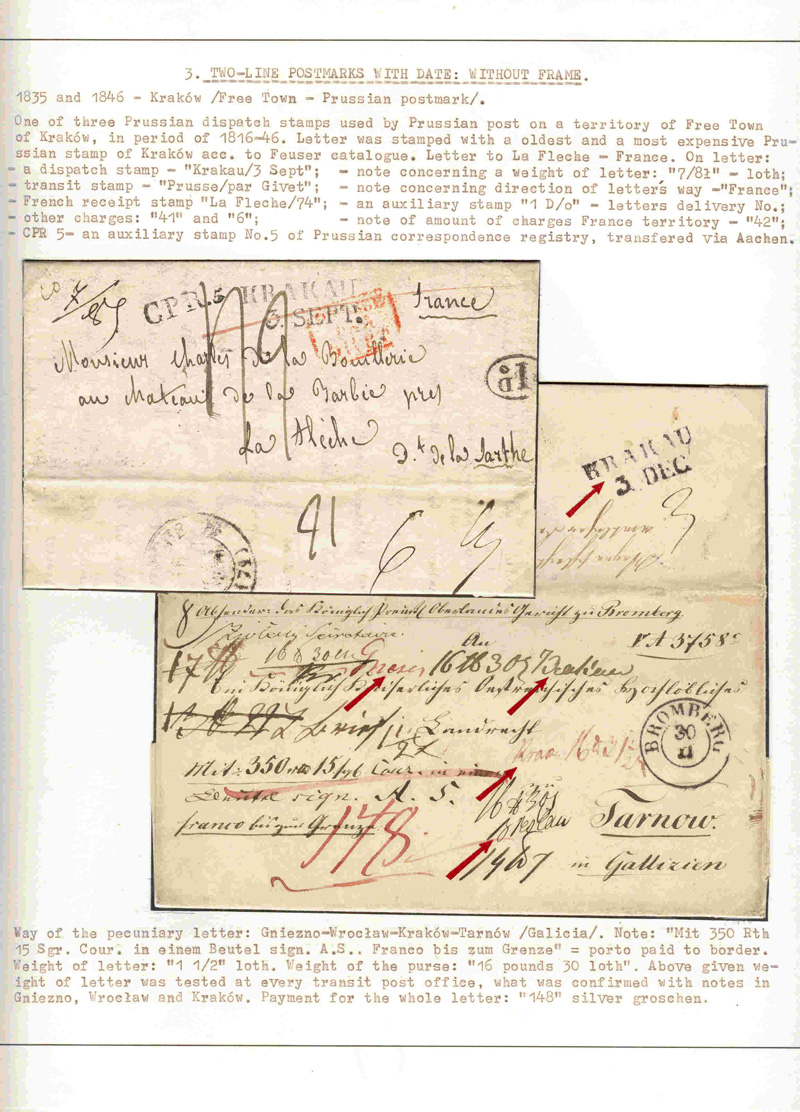 3. TWO-LINE POSTMARKS WITH DATE: WITHOUT FRAME.
1835 and 1846 - Kraków /Free Town - Prussian postmark/.
One of three Prussian dispatch stamps used by Prussian post on a territory of Free Town
of Kraków, in period of 1816-46. Letter was stamped with a oldest and a most expensive Pru-
ssian stamp of Kraków acc. to Feuser catalogue. Letter to La Fleche - France. On letter:
- a dispatch stamp - "Krakau/3 Sept"; - note concerning a weight of letter: "7/8l" - loth;
- transit stamp - "Prusse/par Givet"; - note concerning direction of letters way -"France";
- French receipt stamp "La Fleche/74"; - an auxiliary stamp "1 D/o" - letters delivery No.;
- other charges: "41" and "6"; - note of amount of charges France territory - "42";
- CPR 5- an auxiliary stamp No.5 of Prussian correspondence registry, transfered via Aachen.
CPR.5 KRAKAU
3. SEPT.
France
Monsieur Charles de la Bouillerie
au Chateau de la Barbée près
La Flèche
D.t de la Sarthe
41
6
KRAKAU
3. DEC
Absender: das Königlich Preuß. Oberlandes Gericht zu Bromberg.
An
Gnesen 16 ℔ 30 Krakau
Ein Königlich Kaiserliches Oestreichisches Hochlöbliches
Landrecht
BROMBERG
30
11
Mit 350 rt 15 sgl. Cour. in einem
Beutel sign. A. S.
franco bis zur Grenze
148
Breslau
Tarnow.
in Gallizien
Way of the pecuniary letter: Gniezno-Wrocław-Kraków-Tarnów /Galicia/. Note: "Mit 350 Rth
15 Sgr. Cour. in einem Beutel sign. A.S.. Franco bis zum Grenze" = porto paid to border.
Weight of letter: "1 1/2" loth. Weight of the purse: "16 pounds 30 loth". Above given we-
ight of letter was tested at every transit post office, what was confirmed with notes in
Gniezno, Wrocław and Kraków. Payment for the whole letter: "148" silver groschen.